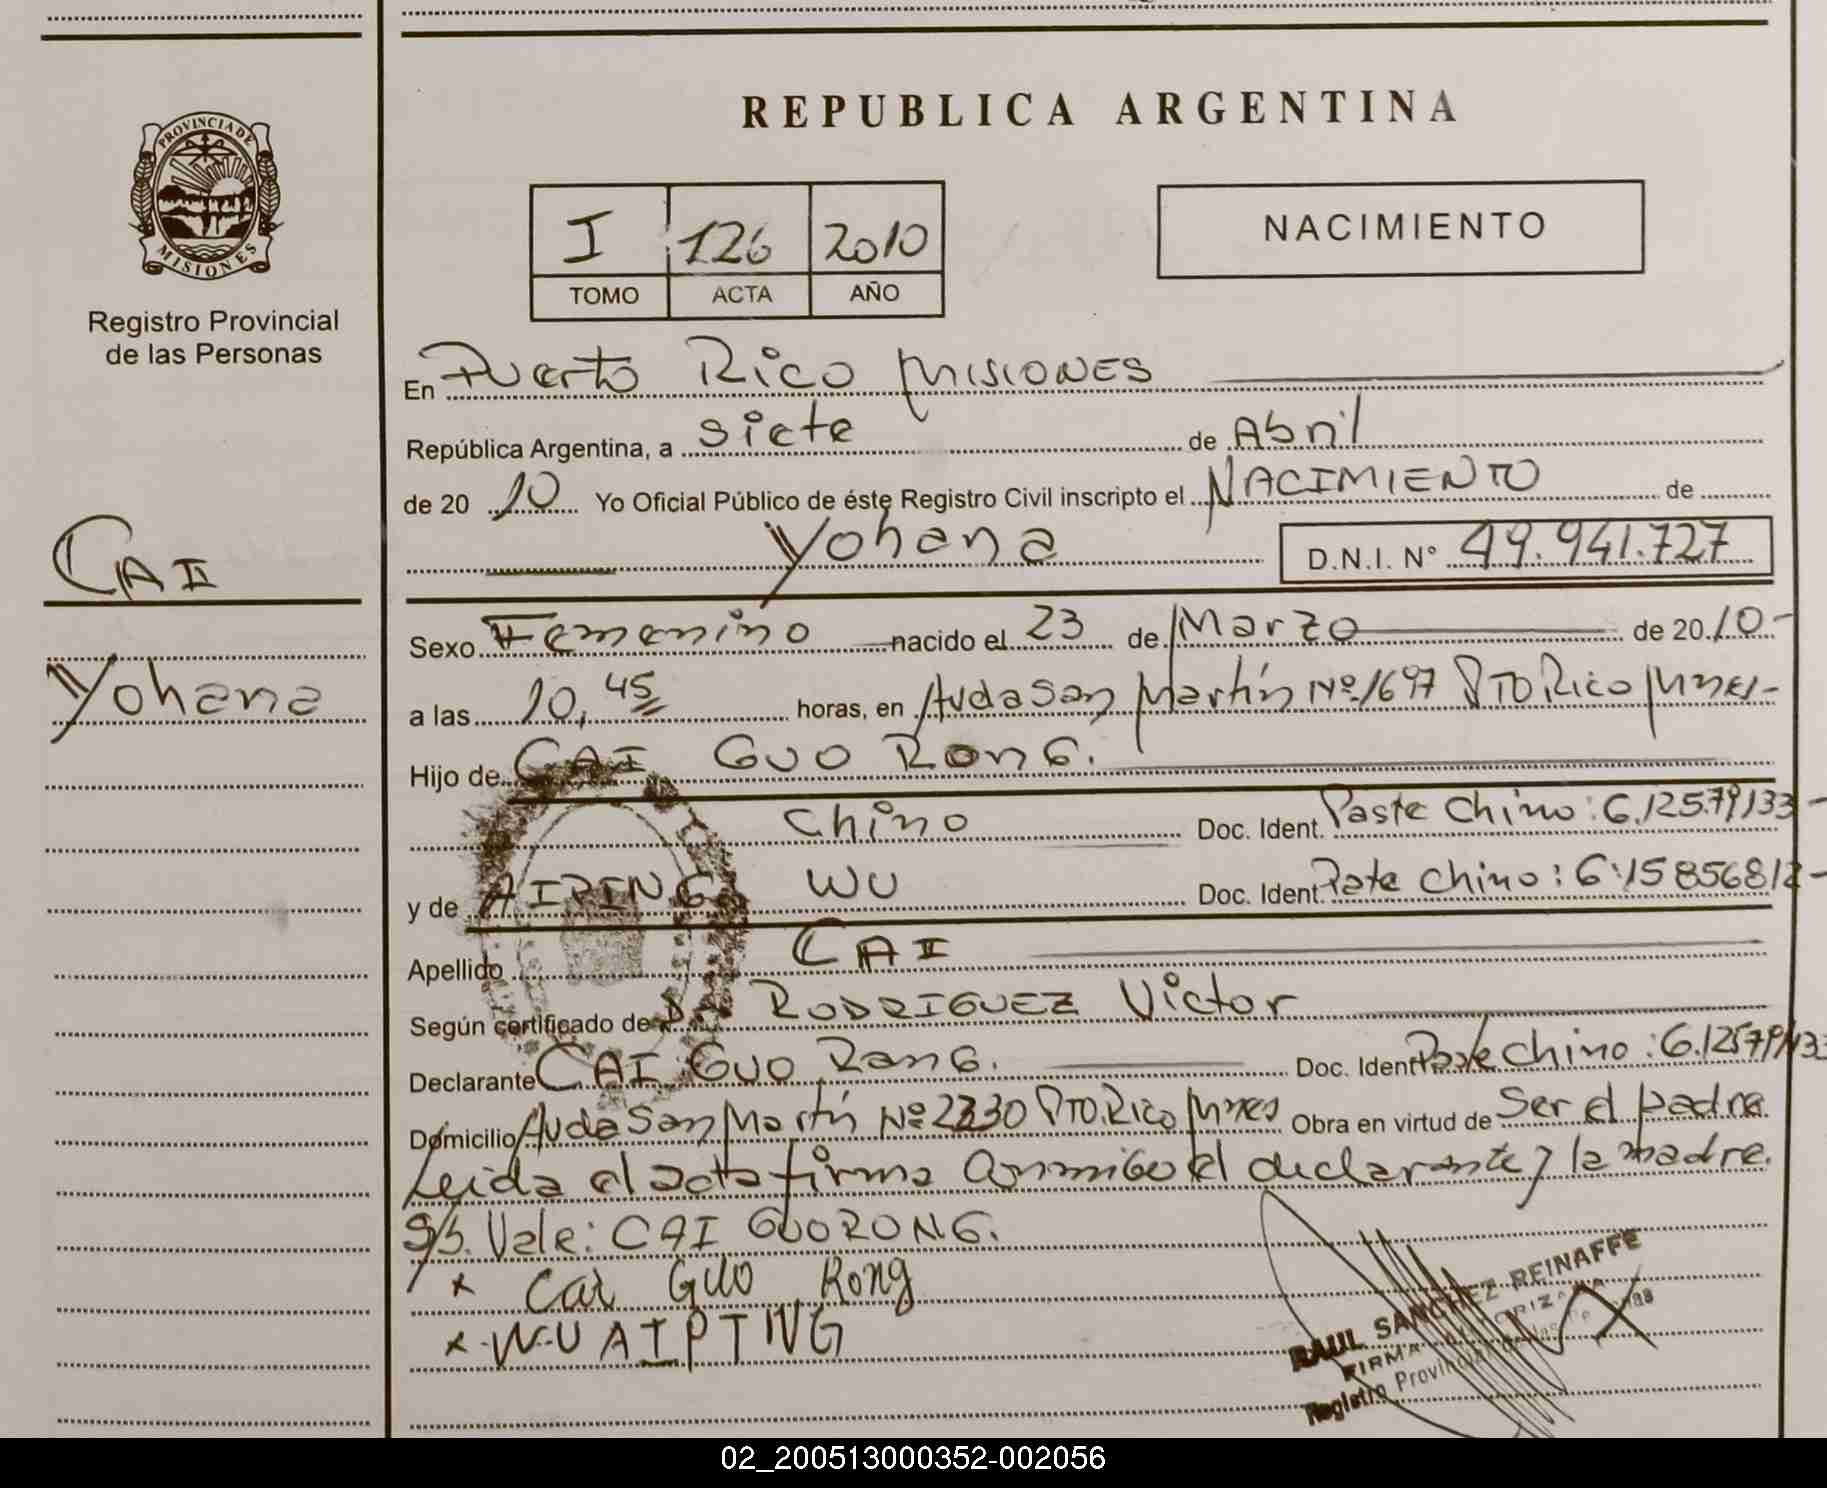 REPUBLICA ARGENTINA
PROVINCIA DE
MISIONES
Registro Provincial
de las Personas
I 126 2010
TOMO ACTA AÑO
NACIMIENTO
En Puerto Rico Misiones
República Argentina, a siete de Abril
de 2010 Yo Oficial Público de éste Registro Civil inscripto el NACIMIENTO de
Yohana D.N.I. N° 49.941.727
CAI
Yohana
Sexo Femenino nacido el 23 de Marzo de 2010-
a las 10,45 horas, en Avda San Martín Nº 1697 PTO Rico Mnes-
Hijo de CAI GUO RONG.
Chino Doc. Ident. Paste Chino: G.12579133-
y de AIPING WU Doc. Ident. Pate Chino: G.15856812-
Apellido CAI
Según certificado de Dr. RODRIGUEZ Victor
Declarante CAI GUO RONG. Doc. Ident. Paste Chino: G.12579133
Domicilio Avda San Martín Nº 2330 PTO. Rico Mnes Obra en virtud de Ser el padre
Leida el acta firma conmigo el declarante y la madre.
S/b. Vale: CAI GUO RONG.
x Cai Guo Rong
x WU AIPING
RAUL SANCHEZ REINAFFE
FIRMA
Registro Provincial
02_200513000352-002056